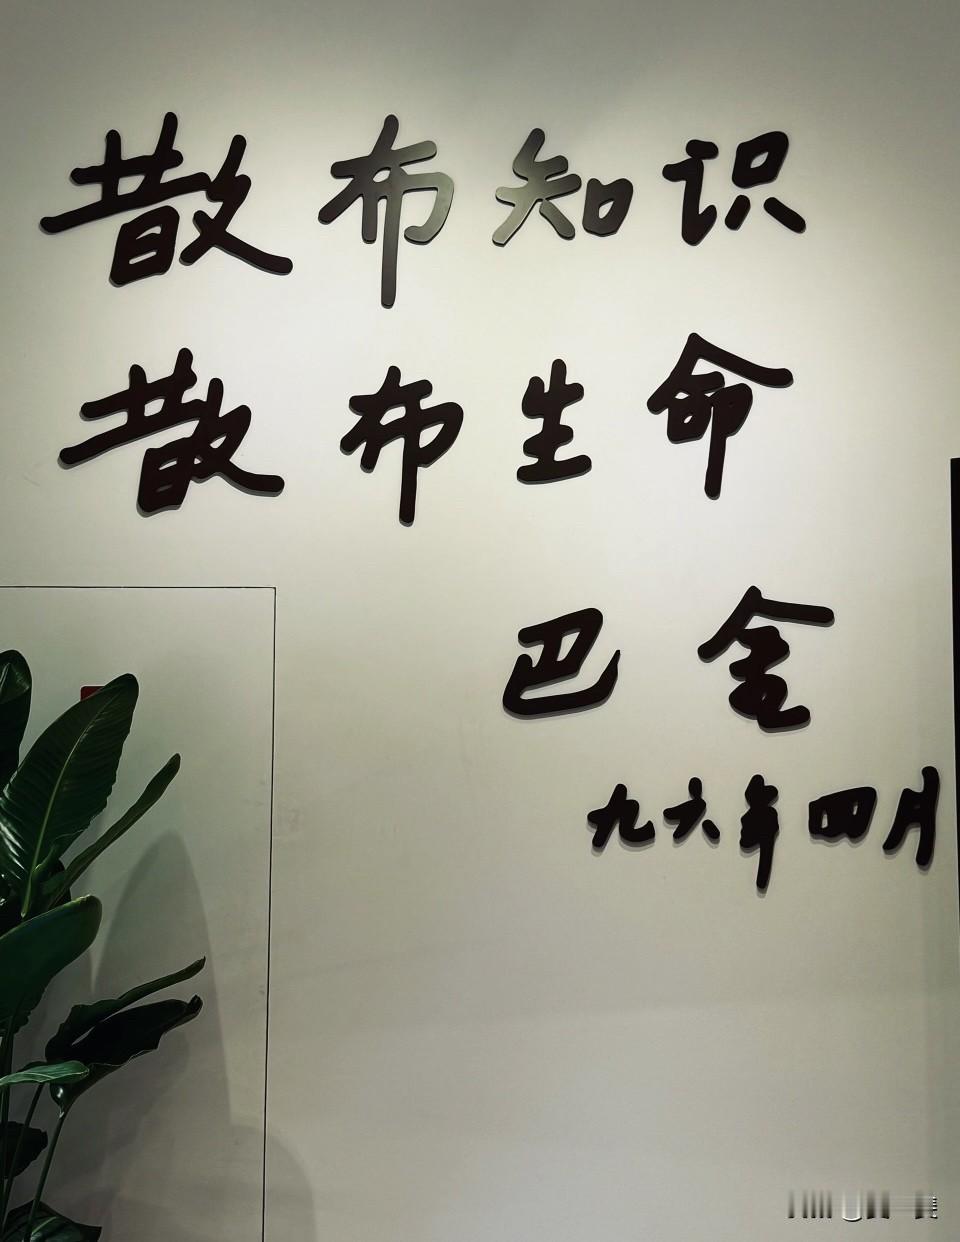 散布知识
散布生命
巴金
九六年四月